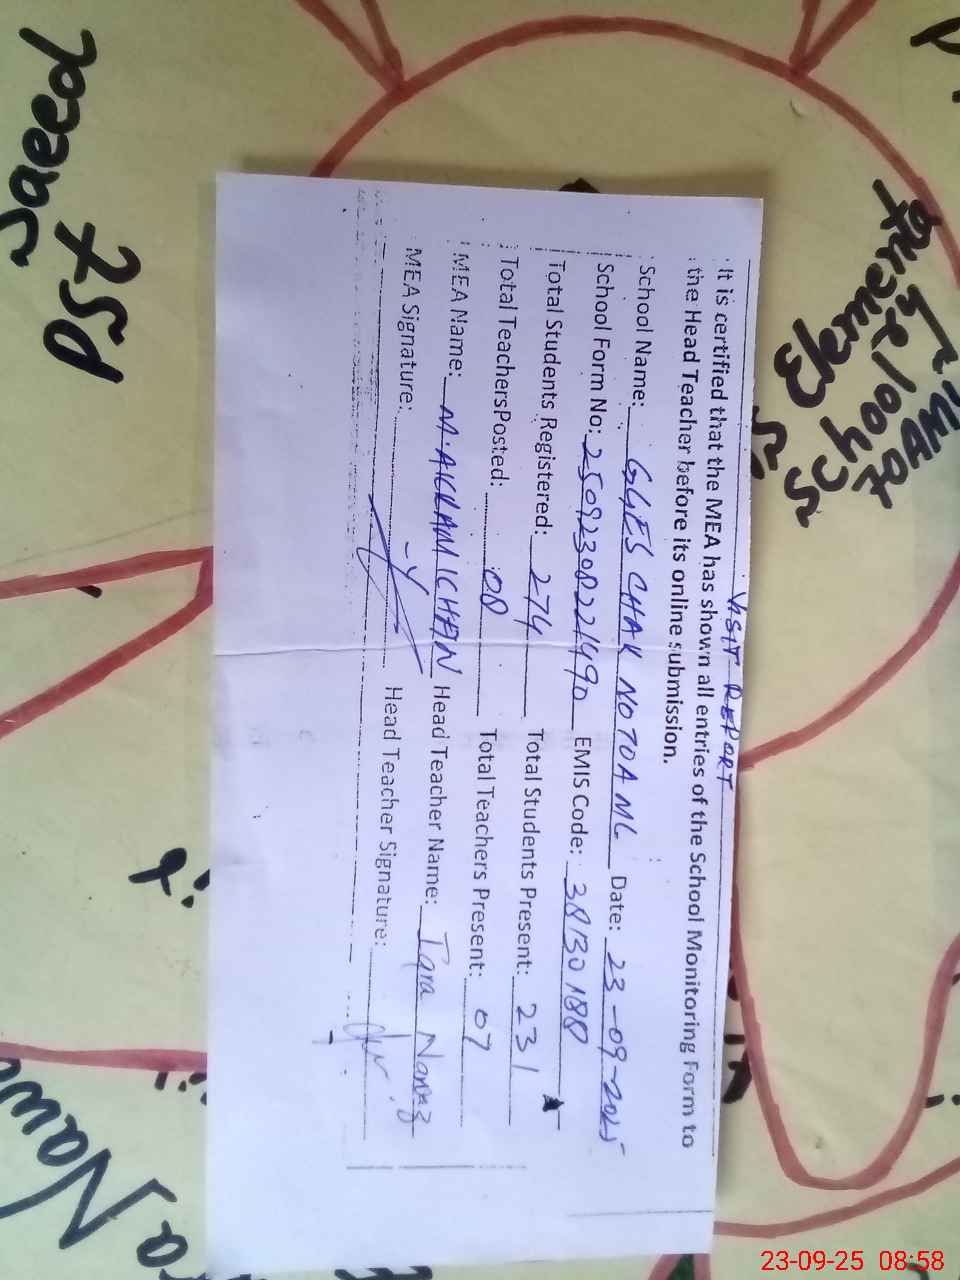 VISIT REPORT
It is certified that the MEA has shown all entries of the School Monitoring Form to
the Head Teacher before its online submission.
School Name: GGES CHAK NO 70A ML Date: 23-09-2025
School Form No: 25092308221490 EMIS Code: 38130188
Total Students Registered: 274 Total Students Present: 231
Total TeachersPosted: 08 Total Teachers Present: 07
MEA Name: M. AKRAM KHAN Head Teacher Name: Iqra
MEA Signature: Head Teacher Signature:
Elementa
ry
School
70AML
PST
23-09-25 08:58